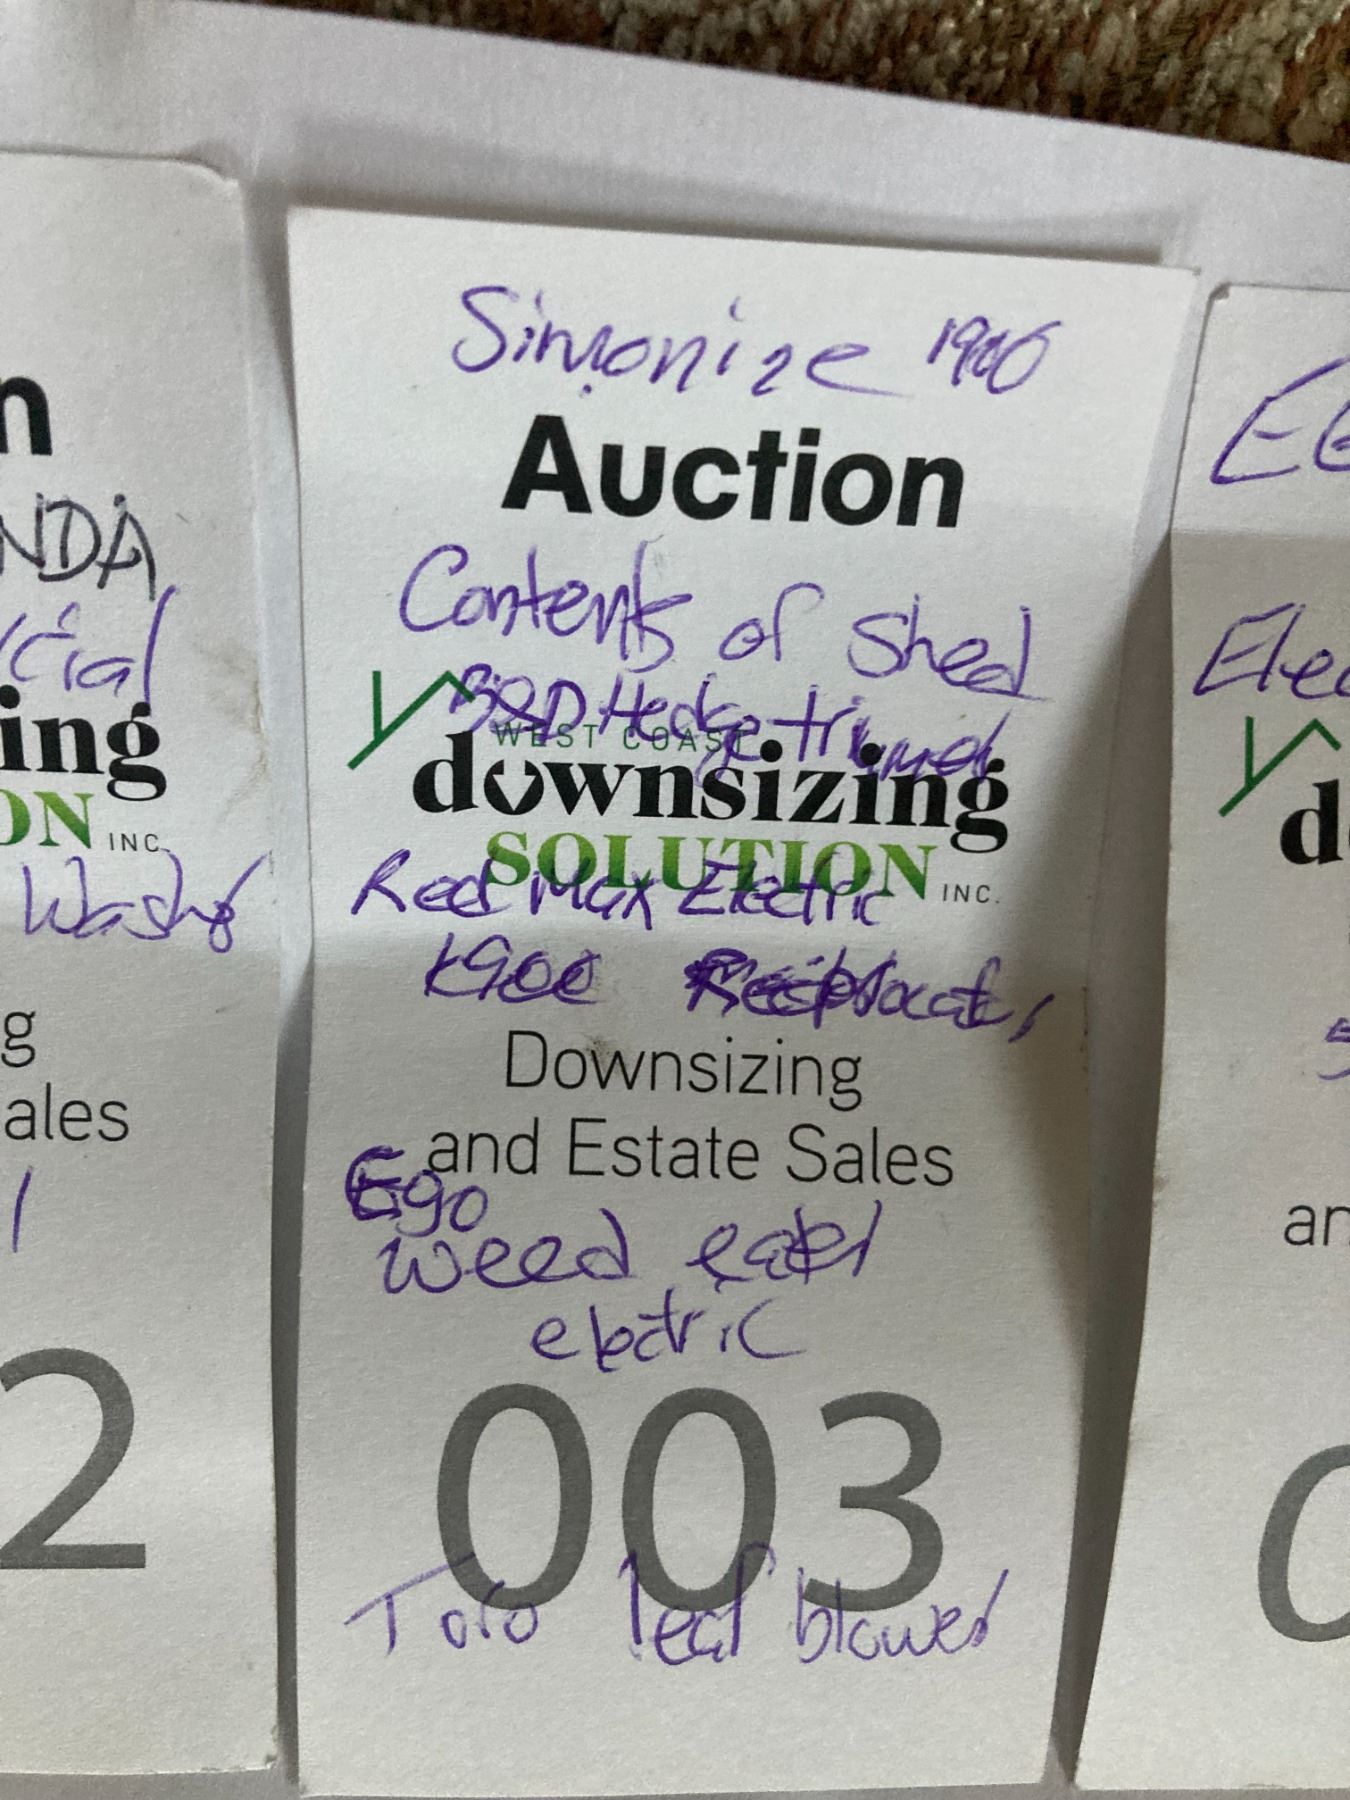 n
NDA
cial
ing
ON INC.
Washer
g
ales
2
Simonize
Auction
Contents of Shed
B&D Hedge trimmer
WEST COAST
downsizing
SOLUTION INC.
Red Max Electric
Downsizing
and Estate Sales
Ego
weed eater
electric
003
Toro leaf blower
Elec
d
an
0